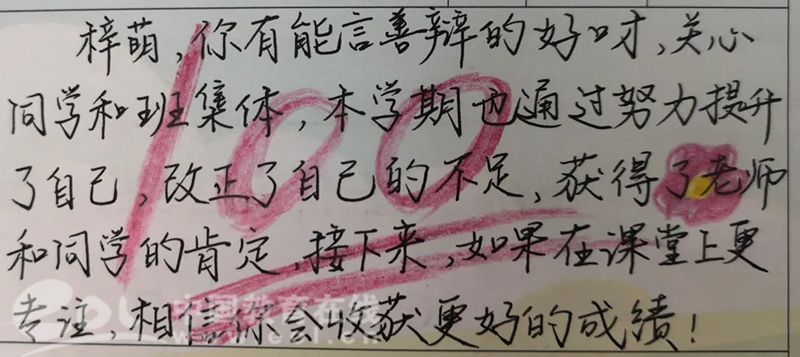 梓萌，你有能言善辩的好口才，关心
同学和班集体，本学期也通过努力提升
了自己，改正了自己的不足，获得了老师
和同学的肯定，接下来，如果在课堂上更
专注，相信你会收获更好的成绩！
100
中国教育在线